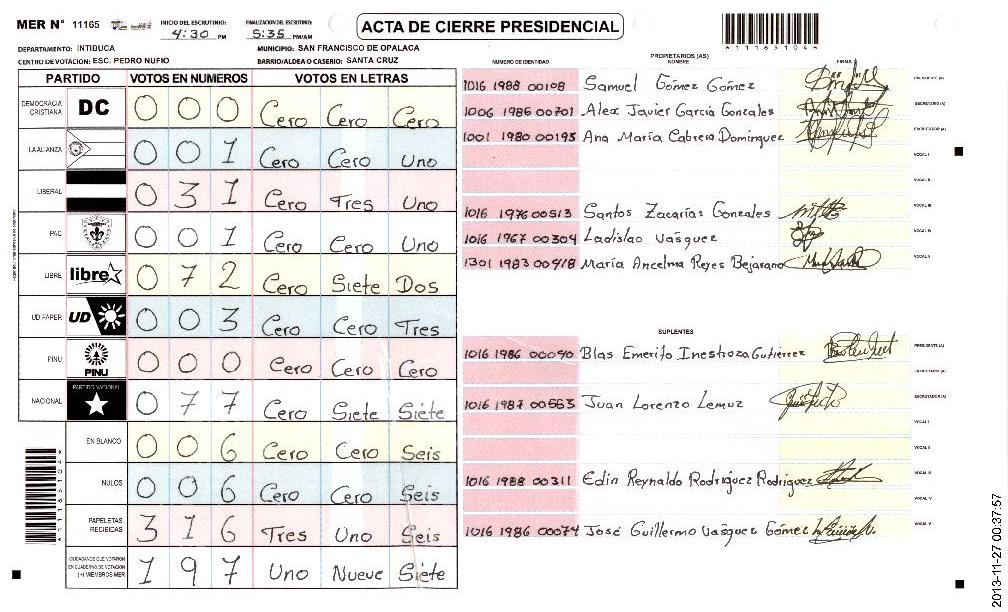 MER N° 11165 INICIO DEL ESCRUTINIO: 4:30 PM FINALIZACION DEL ESCRUTINIO: 5:35 PM/AM ACTA DE CIERRE PRESIDENCIAL
DEPARTAMENTO: INTIBUCA MUNICIPIO: SAN FRANCISCO DE OPALACA
CENTRO DE VOTACION: ESC. PEDRO NUFIO BARRIO/ALDEA O CASERIO: SANTA CRUZ
PARTIDO VOTOS EN NUMEROS VOTOS EN LETRAS
DEMOCRACIA CRISTIANA DC 0 0 0 Cero Cero Cero
LA ALIANZA 0 0 1 Cero Cero Uno
LIBERAL 0 3 1 Cero Tres Uno
PAC 0 0 1 Cero Cero Uno
LIBRE libre 0 7 2 Cero Siete Dos
UD FAPER UD 0 0 3 Cero Cero Tres
PINU PINU 0 0 0 Cero Cero Cero
NACIONAL PARTIDO NACIONAL 0 7 7 Cero Siete Siete
EN BLANCO 0 0 6 Cero Cero Seis
NULOS 0 0 6 Cero Cero Seis
PAPELETAS RECIBIDAS 3 1 6 Tres Uno Seis
CIUDADANOS QUE VOTARON EN CUADERNO DE VOTACION (+) MIEMBROS MER 1 9 7 Uno Nueve Siete
PROPIETARIOS (AS)
NUMERO DE IDENTIDAD NOMBRE FIRMA
1016 1988 00108 Samuel Gómez Gómez PRESIDENTE (A)
1006 1986 00701 Alex Javier García Gonzales SECRETARIO (A)
1001 1980 00195 Ana María Cabrera Dominguez ESCRUTADOR (A)
VOCAL I
VOCAL II
1016 1976 00513 Santos Zacarías Gonzales VOCAL III
1016 1967 00304 Ladislao Vásquez VOCAL IV
1301 1983 00418 María Ancelma Reyes Bejarano VOCAL V
SUPLENTES
1016 1986 00090 Blas Emerito Inestroza Gutierrez PRESIDENTE (A)
SECRETARIO (A)
1016 1987 00563 Juan Lorenzo Lemuz ESCRUTADOR (A)
VOCAL I
VOCAL II
1016 1988 00311 Edin Reynaldo Rodríguez Rodriguez VOCAL III
VOCAL IV
1016 1986 00074 José Guillermo Vasquez Gómez VOCAL V
2013-11-27 00:37:57